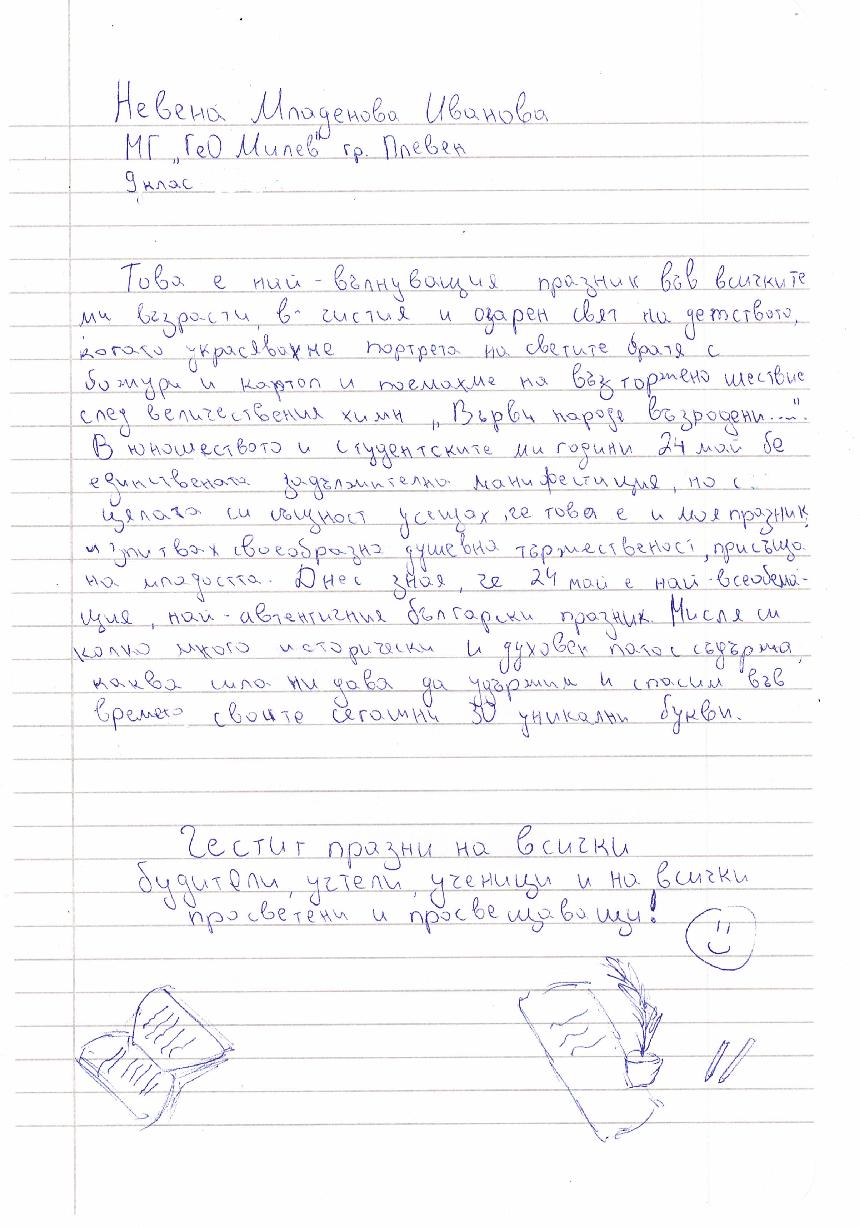 Невена Младенова Иванова
МГ „Гео Милев" гр. Плевен
9 клас
Това е най-вълнуващия празник във всичките
ми възрасти, в чистия и озарен свят на детството,
когато украсявахме портрета на светите братя с
божури и картоп и поемахме на възторжено шествие
след величествения химн „Върви народе възродени....".
В юношеството и студентските ми години 24 май бе
единствената задължителна манифестация, но с
цялата си същност усещах, че това е и моя празник,
изпитвах своеобразна душевна тържественост, присъща
на младостта. Днес зная, че 24 май е най-всеобема-
щия, най-автентичния български празник. Мисля си
колко много исторически и духовен патос съдържа,
каква сила ни дава да удържим и спасим във
времето своите сегашни 30 уникални букви.
Честит празни на всички
будители, учтели, ученици и на всички
просветени и просвещаващи!